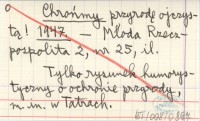 Chrońmy przyrodę ojczys-
tą! 1947. — Młoda Rzecz-
pospolita 2, nr 25, il.
Tylko rysunek humorys-
tyczny o ochronie przyrody,
m.in. w Tatrach.